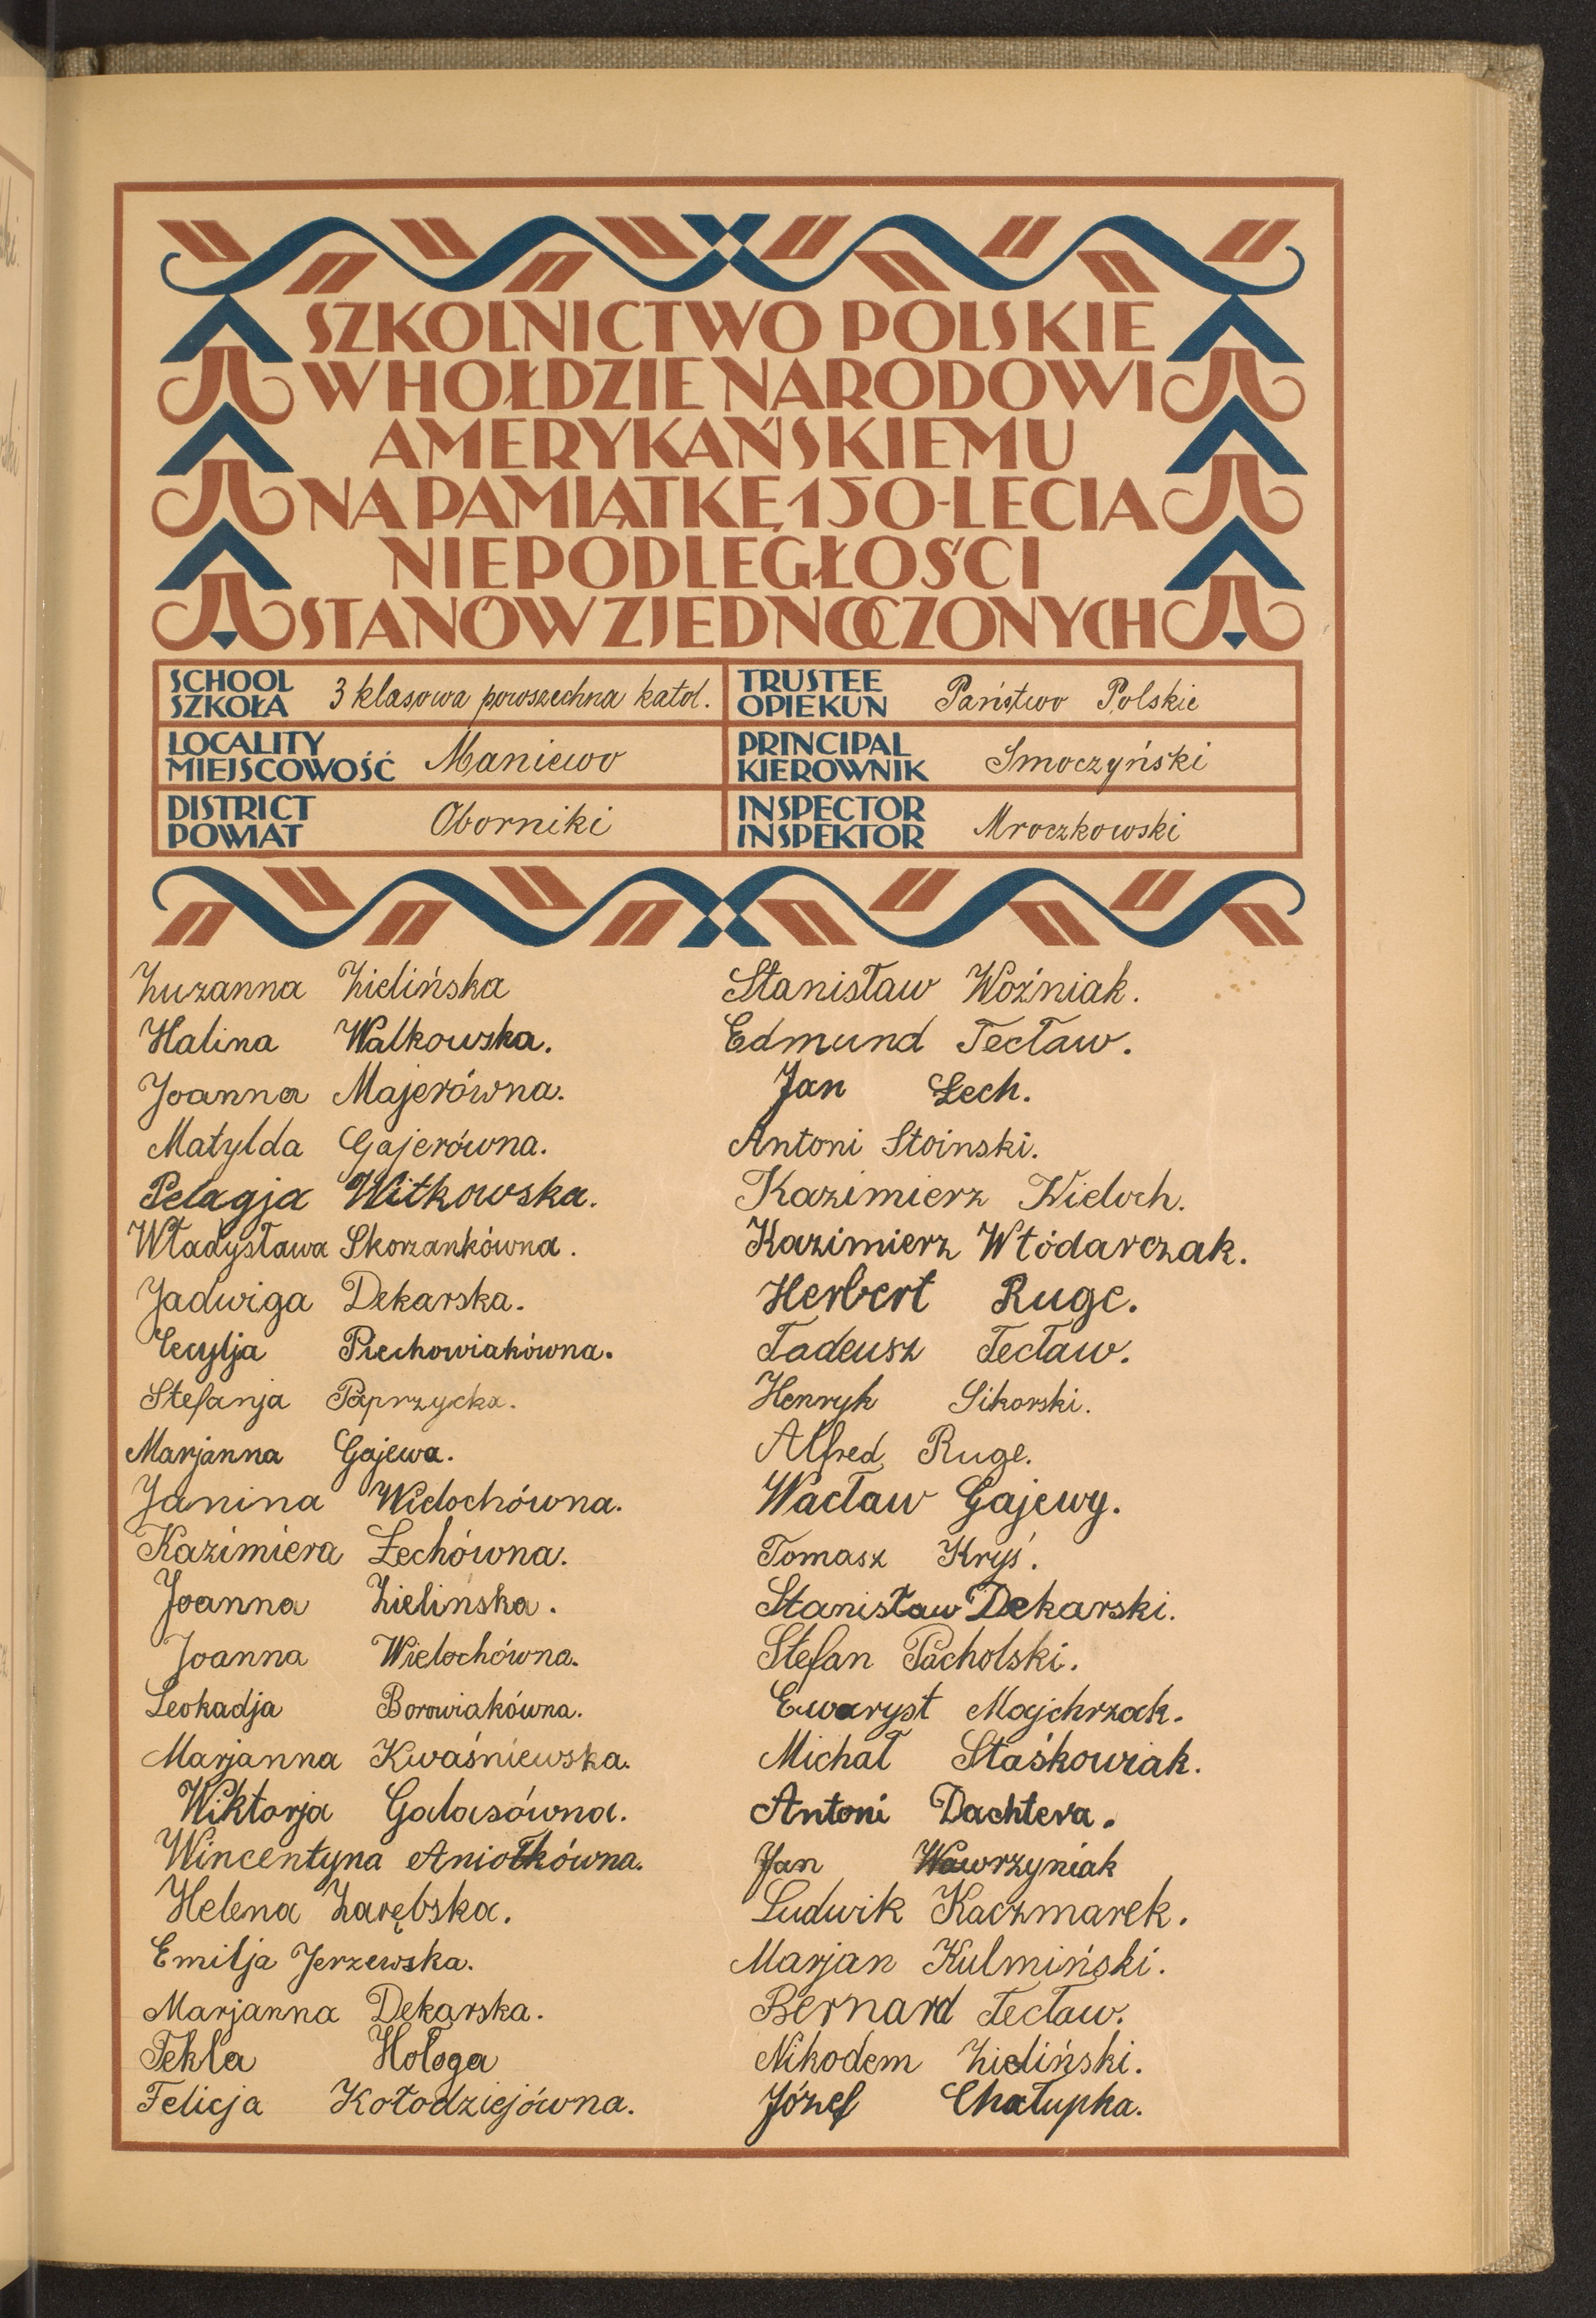 SZKOLNICTWO POLSKIE
W HOŁDZIE NARODOWI
AMERYKAŃSKIEMU
NA PAMIĄTKĘ 150-LECIA
NIEPODLEGŁOŚCI
STANÓW ZJEDNOCZONYCH
SCHOOL
SZKOŁA 3 klasowa powszechna katol.
TRUSTEE
OPIEKUN Państwo Polskie
LOCALITY
MIEJSCOWOŚĆ Maniewo
PRINCIPAL
KIEROWNIK Smoczyński
DISTRICT
POWIAT Oborniki
INSPECTOR
INSPEKTOR Mroczkowski
Zuzanna Zielińska
Halina Walkowska.
Joanna Majerówna.
Matylda Gajerówna.
Pelagja Witkowska.
Władysława Skorzankówna.
Jadwiga Dekarska.
Cecylja Piechowiakówna.
Stefanja Paprzycka.
Marjanna Gajewa.
Janina Wielochówna.
Kazimiera Lechówna.
Joanna Zielinska.
Joanna Wielochówna.
Leokadja Borowiakówna.
Marjanna Kwaśniewska.
Wiktorja Galasówna.
Wincentyna Aniołkówna.
Helena Zarębska.
Emilja Jerzewska.
Marjanna Dekarska.
Tekla Hołoga
Felicja Kołodziejówna.
Stanisław Woźniak.
Edmund Tecław.
Jan Lech.
Antoni Stoinski.
Kazimierz Wieloch.
Kazimierz Włódarczak.
Herbert Ruge.
Tadeusz Tecław.
Henryk Sikorski.
Alfred Ruge.
Wacław Gajewy.
Tomasz Kryś.
Stanisław Dekarski.
Stefan Pacholski.
Ewaryst Majchrzak.
Michał Staśkowiak.
Antoni Dachtera.
Jan Wawrzyniak
Ludwik Kaczmarek.
Marjan Kulmiński.
Bernard Tecław.
Nikodem Zieliński.
Józef Chałupka.